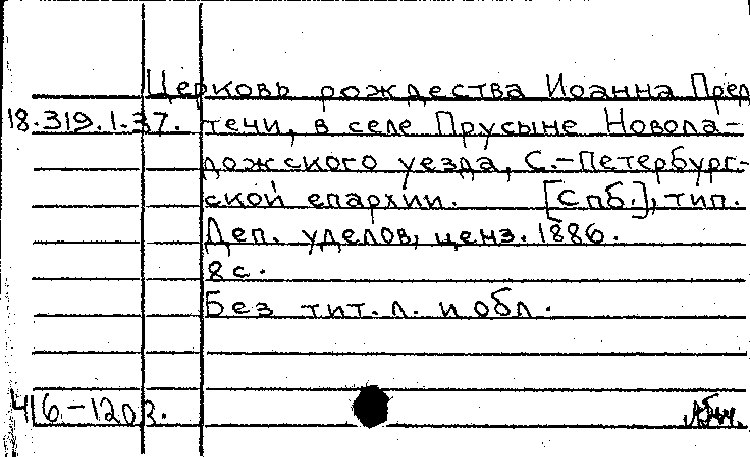 Церковь рождества Иоанна Пред
18.319.1.37. течи, в селе Прусыне Новола-
дожского уезда, С.-Петербург-
ской епархии. [Спб.], тип.
Деп. уделов, ценз. 1886.
8 с.
Без тит. л. и обл.
416-1203.